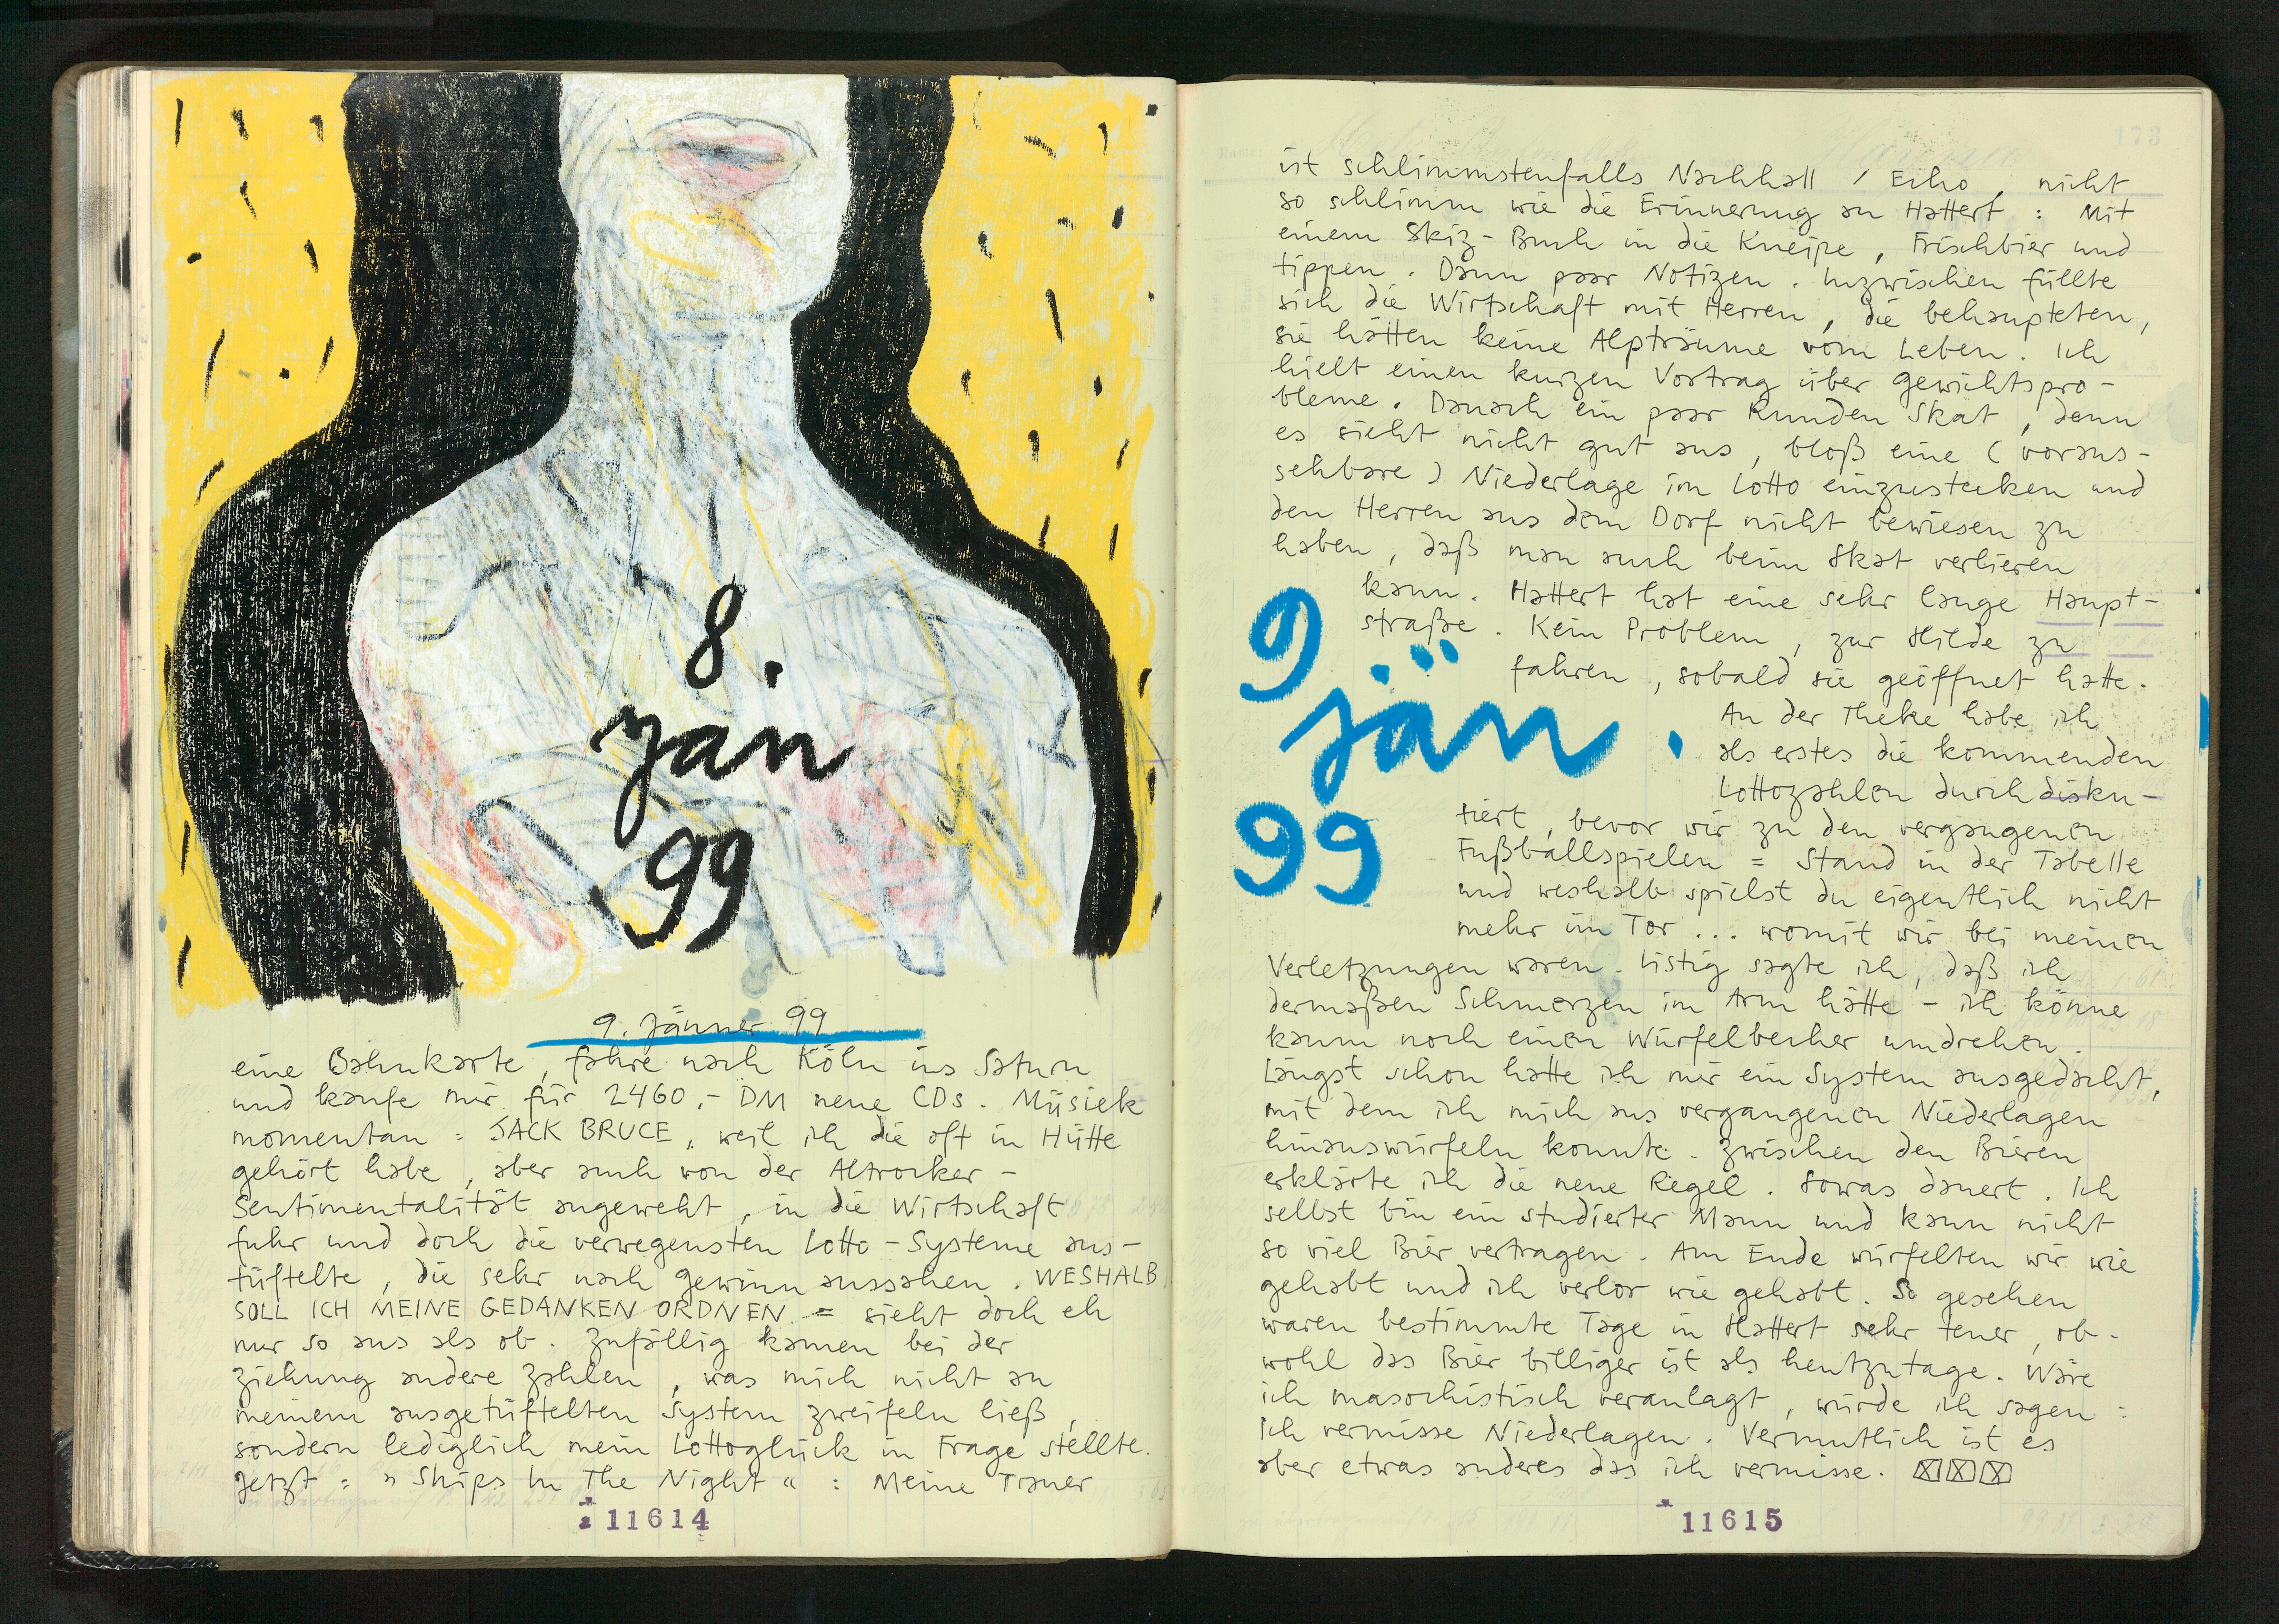 8.
jan
99
9. Jänner 99
eine Bahnkarte, fahre nach Köln ins Saturn
und kaufe mir für 2460,- DM neue CDs. Müsiek
momentan : JACK BRUCE, weil ich die oft in Hütte
gehört habe, aber auch von der Altrocker-
Sentimentalität angeweht, in die Wirtschaft
fuhr und doch die verwegensten Lotto-Systeme aus-
tüftelte, die sehr nach Gewinn aussahen. WESHALB
SOLL ICH MEINE GEDANKEN ORDNEN = sieht doch eh
nur so aus als ob. Zufällig kamen bei der
Ziehung andere Zahlen, was mich nicht an
meinem ausgetüftelten System zweifeln ließ,
sondern lediglich mein Lottoglück in Frage stellte.
Jetzt : » Ships In The Night « : Meine Trauer
11614
173
ist schlimmstenfalls Nachhall / Echo, nicht
so schlimm wie die Erinnerung an Hattert : Mit
einem Skiz-Buch in die Kneipe, Frischbier und
tippen. Dann paar Notizen. Inzwischen füllte
sich die Wirtschaft mit Herren, die behaupteten,
sie hätten keine Alpträume vom Leben. Ich
hielt einen kurzen Vortrag über Gewichtspro-
bleme. Danach ein paar Runden Skat, denn
es sieht nicht gut aus, bloß eine (voraus-
sehbare) Niederlage im Lotto einzustecken und
den Herren aus dem Dorf nicht bewiesen zu
haben, daß man auch beim Skat verlieren
kann. Hattert hat eine sehr lange Haupt-
straße. Kein Problem, zur Hilde zu
fahren, sobald sie geöffnet hatte.
9
jän.
99
An der Theke habe ich
als erstes die kommenden
Lottozahlen durchdisku-
tiert, bevor wir zu den vergangenen
Fußballspielen = Stand in der Tabelle
und weshalb spielst du eigentlich nicht
mehr im Tor ... womit wir bei meinen
Verletzungen waren. Listig sagte ich, daß ich
dermaßen Schmerzen im Arm hätte - ich könne
kaum noch einen Würfelbecher umdrehen.
Längst schon hatte ich mir ein System ausgedacht,
mit dem ich mich aus vergangenen Niederlagen
hinauswürfeln konnte. Zwischen den Bieren
erklärte ich die neue Regel. Sowas dauert. Ich
selbst bin ein studierter Mann und kann nicht
so viel Bier vertragen. Am Ende würfelten wir wie
gehabt und ich verlor wie gehabt. So gesehen
waren bestimmte Tage in Hattert sehr teuer, ob-
wohl das Bier billiger ist als heutzutage. Wäre
ich masochistisch veranlagt, würde ich sagen :
Ich vermisse Niederlagen. Vermutlich ist es
aber etwas anderes das ich vermisse.
11615